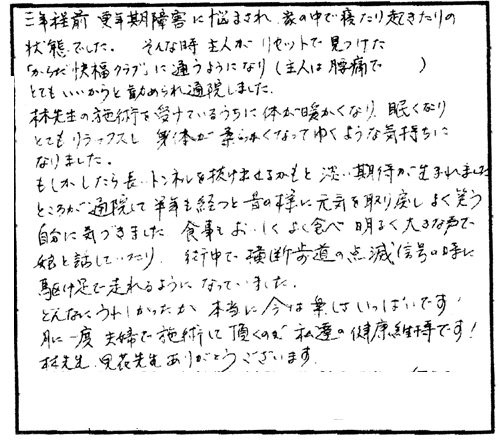 三年程前 更年期障害に悩まされ 家の中で寝たり起きたりの
状態でした。 そんな時 主人が リセットで見つけた
「からだ快福クラブ」に通うようになり(主人は腰痛で )
とてもいいからと勧められ通院しました。
林先生の施術を受けているうちに体が暖かくなり 眠くなり
とてもリラックスし 身体が柔らかくなってゆくような気持ちに
なりました。
もしかしたら長いトンネルを抜け出せるかもと 淡い期待が生まれました
ところが通院して半年も経つと昔の様に元気を取り戻しよく笑う
自分に気づきました 食事もおいしくよく食べ 明るく大きな声で
娘と話していたり、 街中で横断歩道の点滅信号の時に
駆け足で走れるようになっていました。
どんなにうれしかったか 本当に今は楽しさいっぱいです。
月に一度 夫婦で施術して頂くのが 私達の健康維持です!
林先生 先生ありがとうございます。